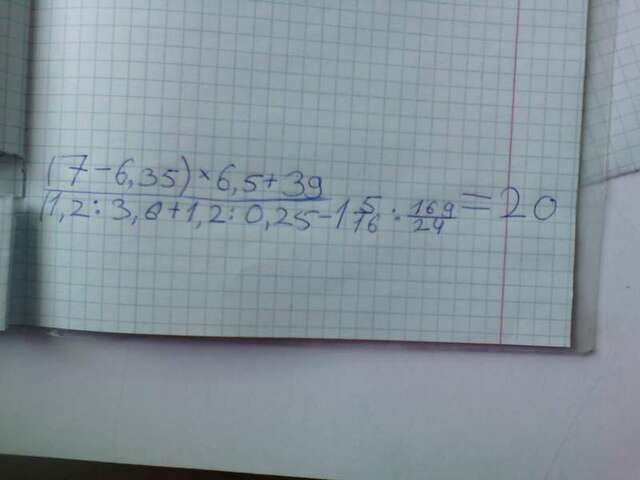 (7-6,35)×6,5+39
(1,2:3,6+1,2:0,25-1 5/16 : 169/24 =20